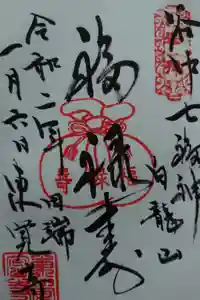 谷中七福神
白龍山
福禄寿
令和二年田端
一月六日東覚寺